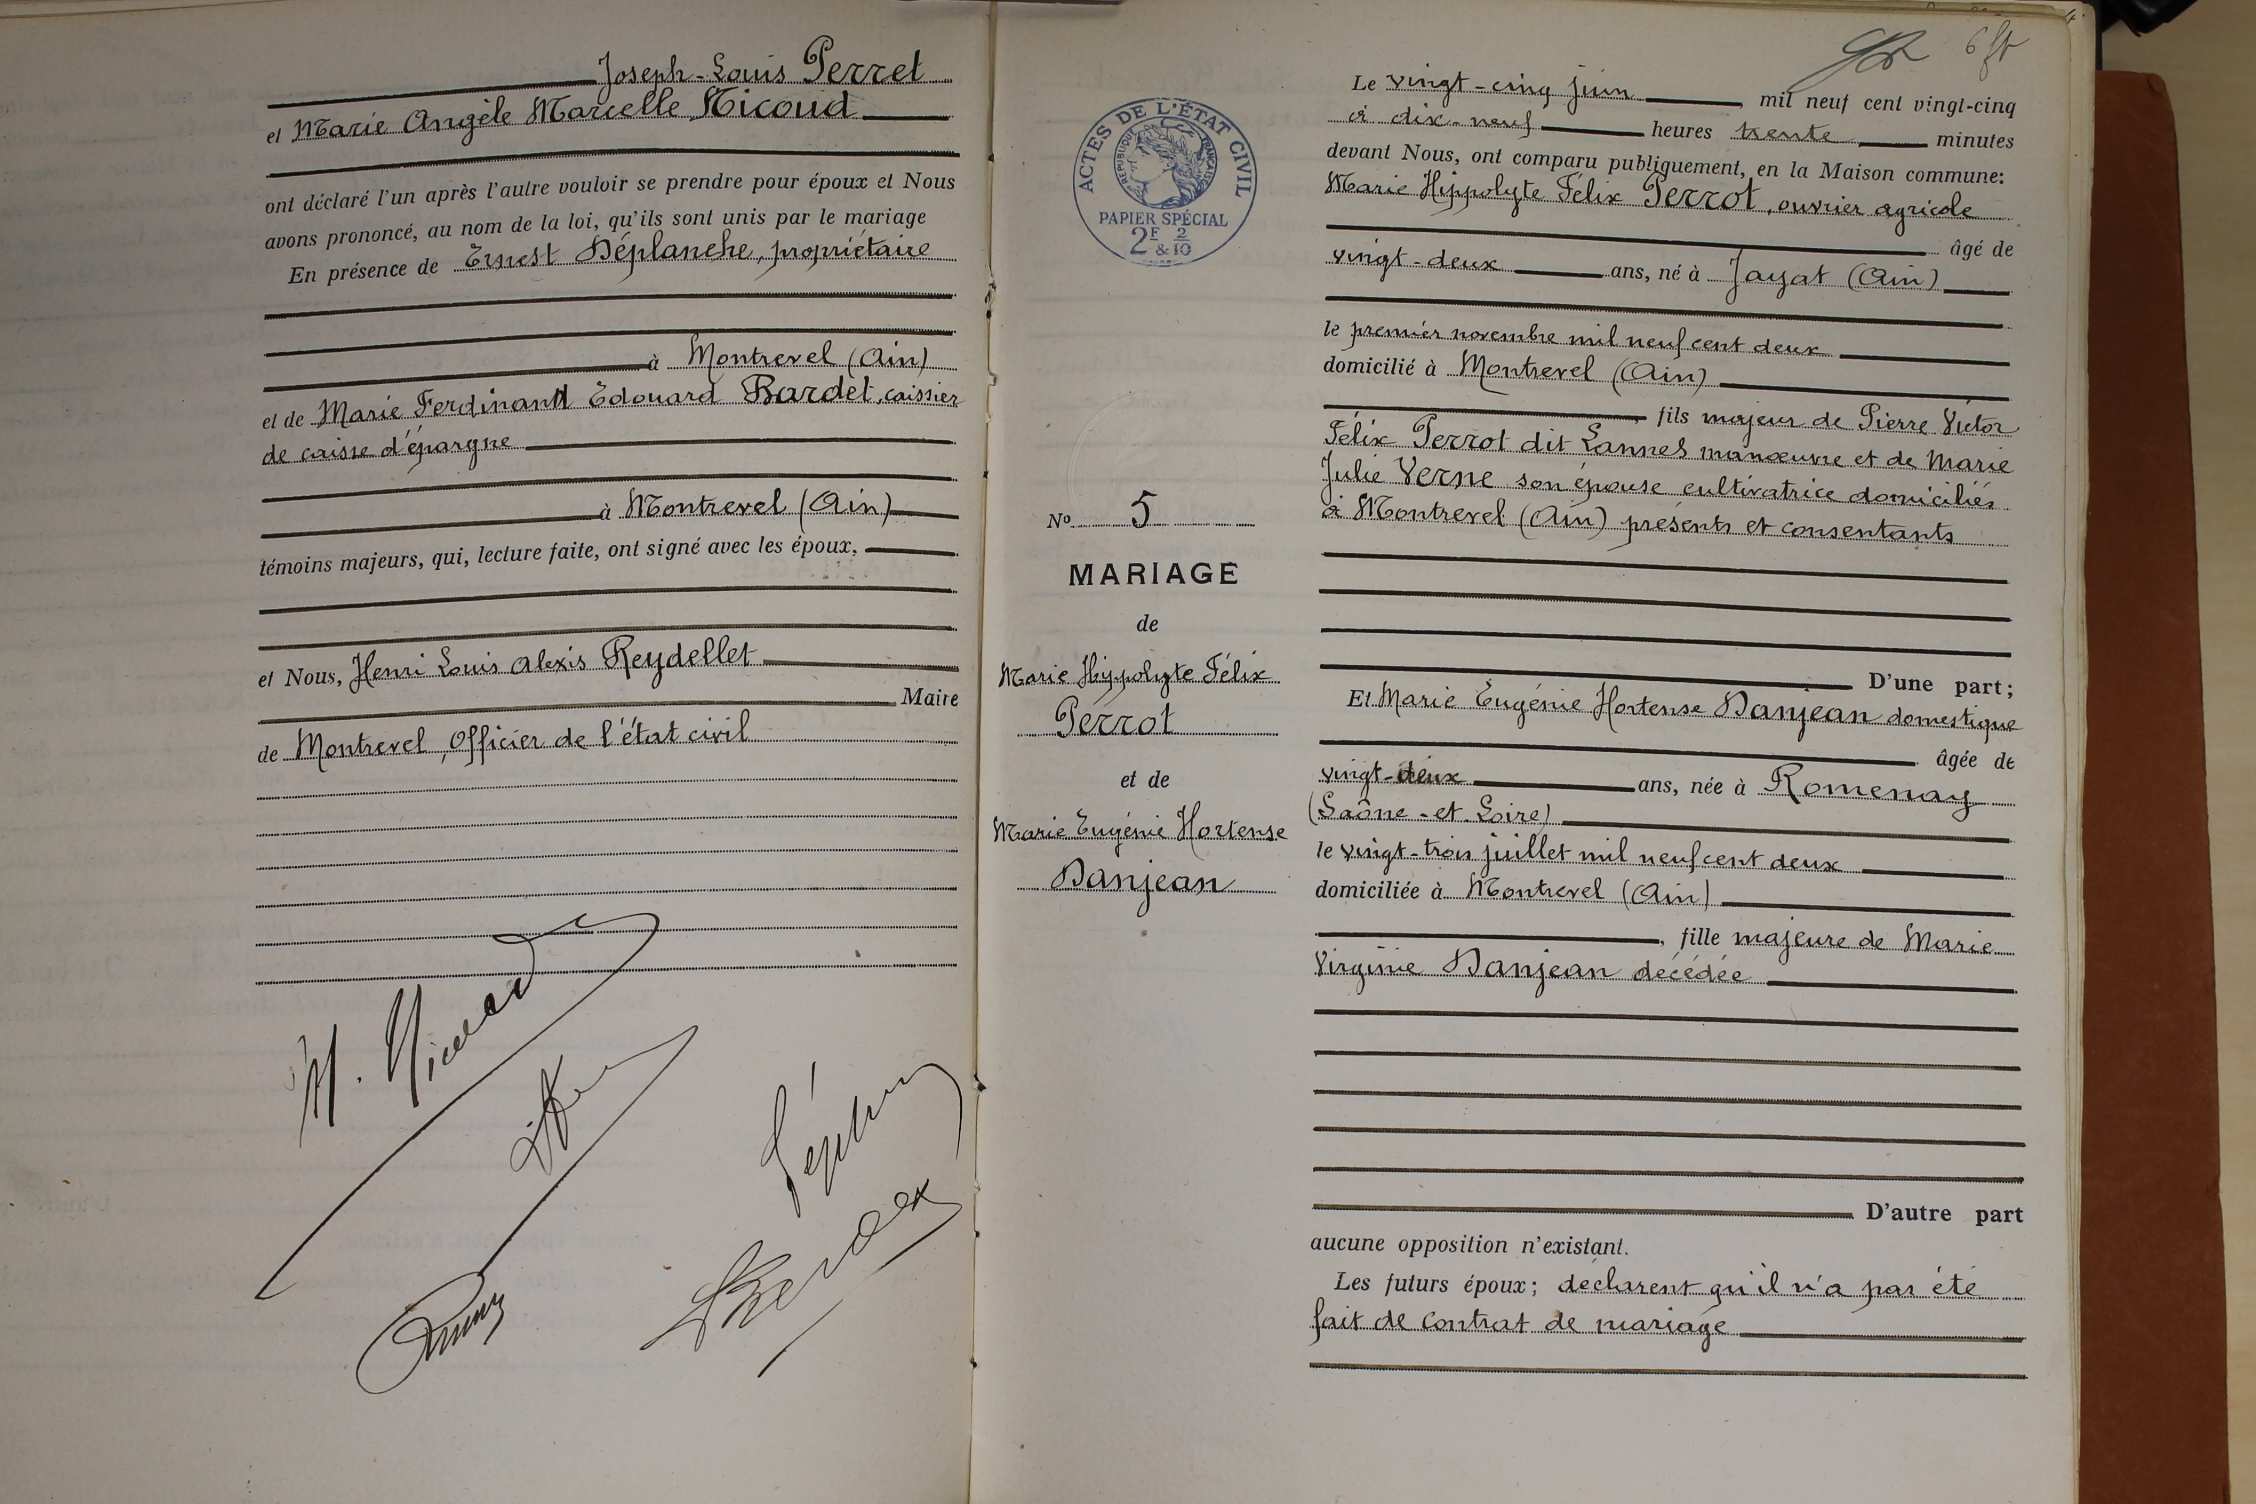 Joseph-Louis Perret
et Marie Angèle Marcelle Nicoud
ont déclaré l'un après l'autre vouloir se prendre pour époux et Nous
avons prononcé, au nom de la loi, qu'ils sont unis par le mariage
En présence de Ernest Déplanche, propriétaire
à Montrevel (Ain)
et de Marie Ferdinand Edouard Bardet, caissier
de caisse d'épargne
à Montrevel (Ain)
témoins majeurs, qui, lecture faite, ont signé avec les époux,
et Nous, Henri Louis Alexis Reydellet
Maire
de Montrevel, Officier de l'état civil
M. Nicoud
ACTES DE L'ÉTAT CIVIL
RÉPUBLIQUE FRANÇAISE
PAPIER SPÉCIAL
2F 2
& 10
No 5
MARIAGE
de
Marie Hippolyte Félix
Perrot
et de
Marie Eugénie Hortense
Danjean
Le vingt-cinq juin mil neuf cent vingt-cinq
à dix-neuf heures trente minutes
devant Nous, ont comparu publiquement, en la Maison commune:
Marie Hippolyte Félix Perrot, ouvrier agricole
âgé de
vingt-deux ans, né à Jayat (Ain)
le premier novembre mil neuf cent deux
domicilié à Montrevel (Ain)
fils majeur de Pierre Victor
Félix Perrot dit Lannes manœuvre et de Marie
Julie Verne son épouse cultivatrice domiciliés
à Montrevel (Ain) présents et consentants
D'une part;
Et Marie Eugénie Hortense Danjean domestique
âgée de
vingt-deux ans, née à Romenay
(Saône-et-Loire)
le vingt-trois juillet mil neuf cent deux
domiciliée à Montrevel (Ain)
, fille majeure de Marie
Virginie Danjean décédée
D'autre part
aucune opposition n'existant.
Les futurs époux; déclarent qu'il n'a pas été
fait de contrat de mariage